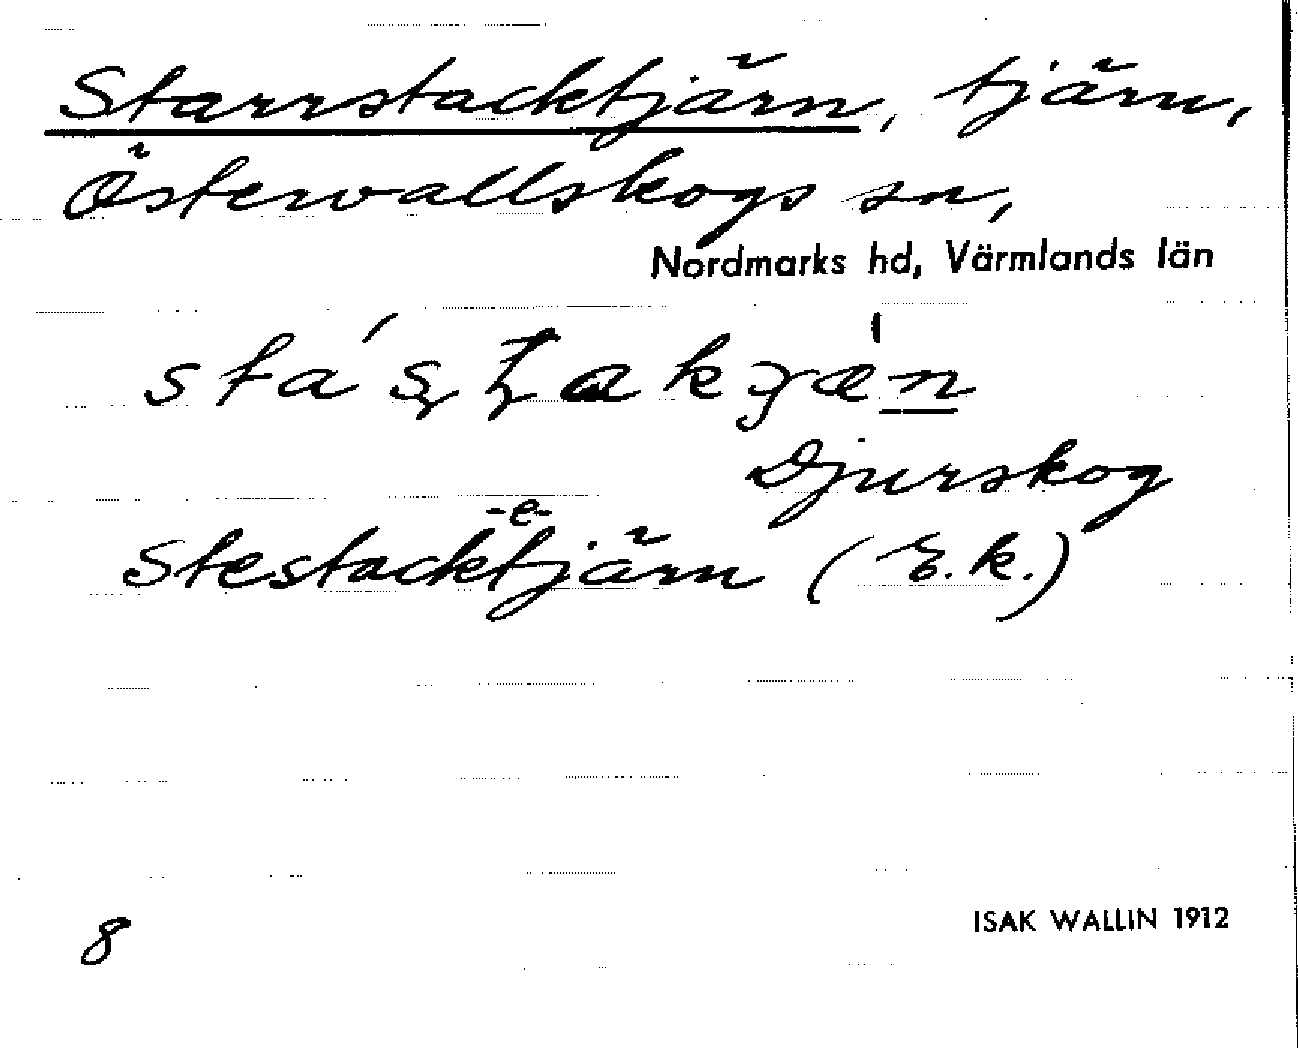 Starrstacktjärn, tjärn,
Östervallskogs sn,
Nordmarks hd, Värmlands län
stá̱ʂʈakjæ̀n
Djurskog
-e-
Stestacktjärn (E.k.)
8
ISAK WALLIN 1912